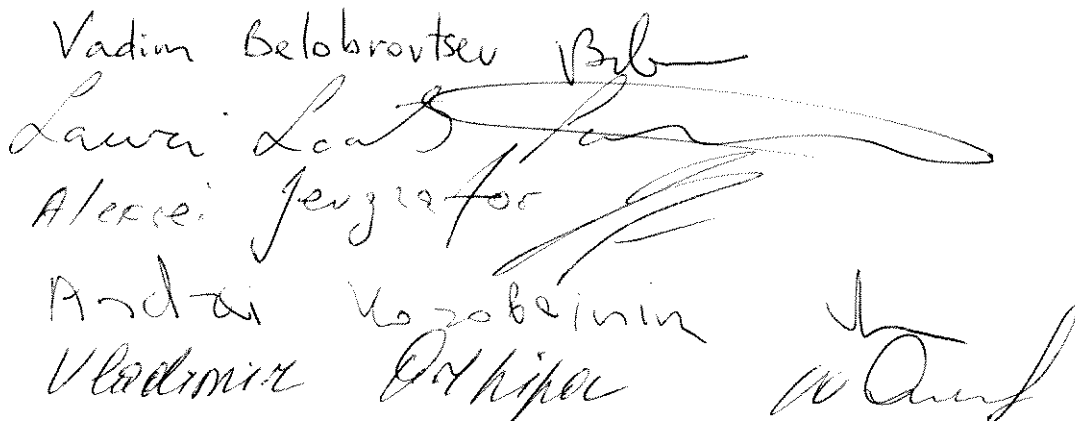 Vadim Belobrovtsev
Lauri Laats
Aleksei Jevgrafov
Andrei Korobeinik
Vladimir Arhipov